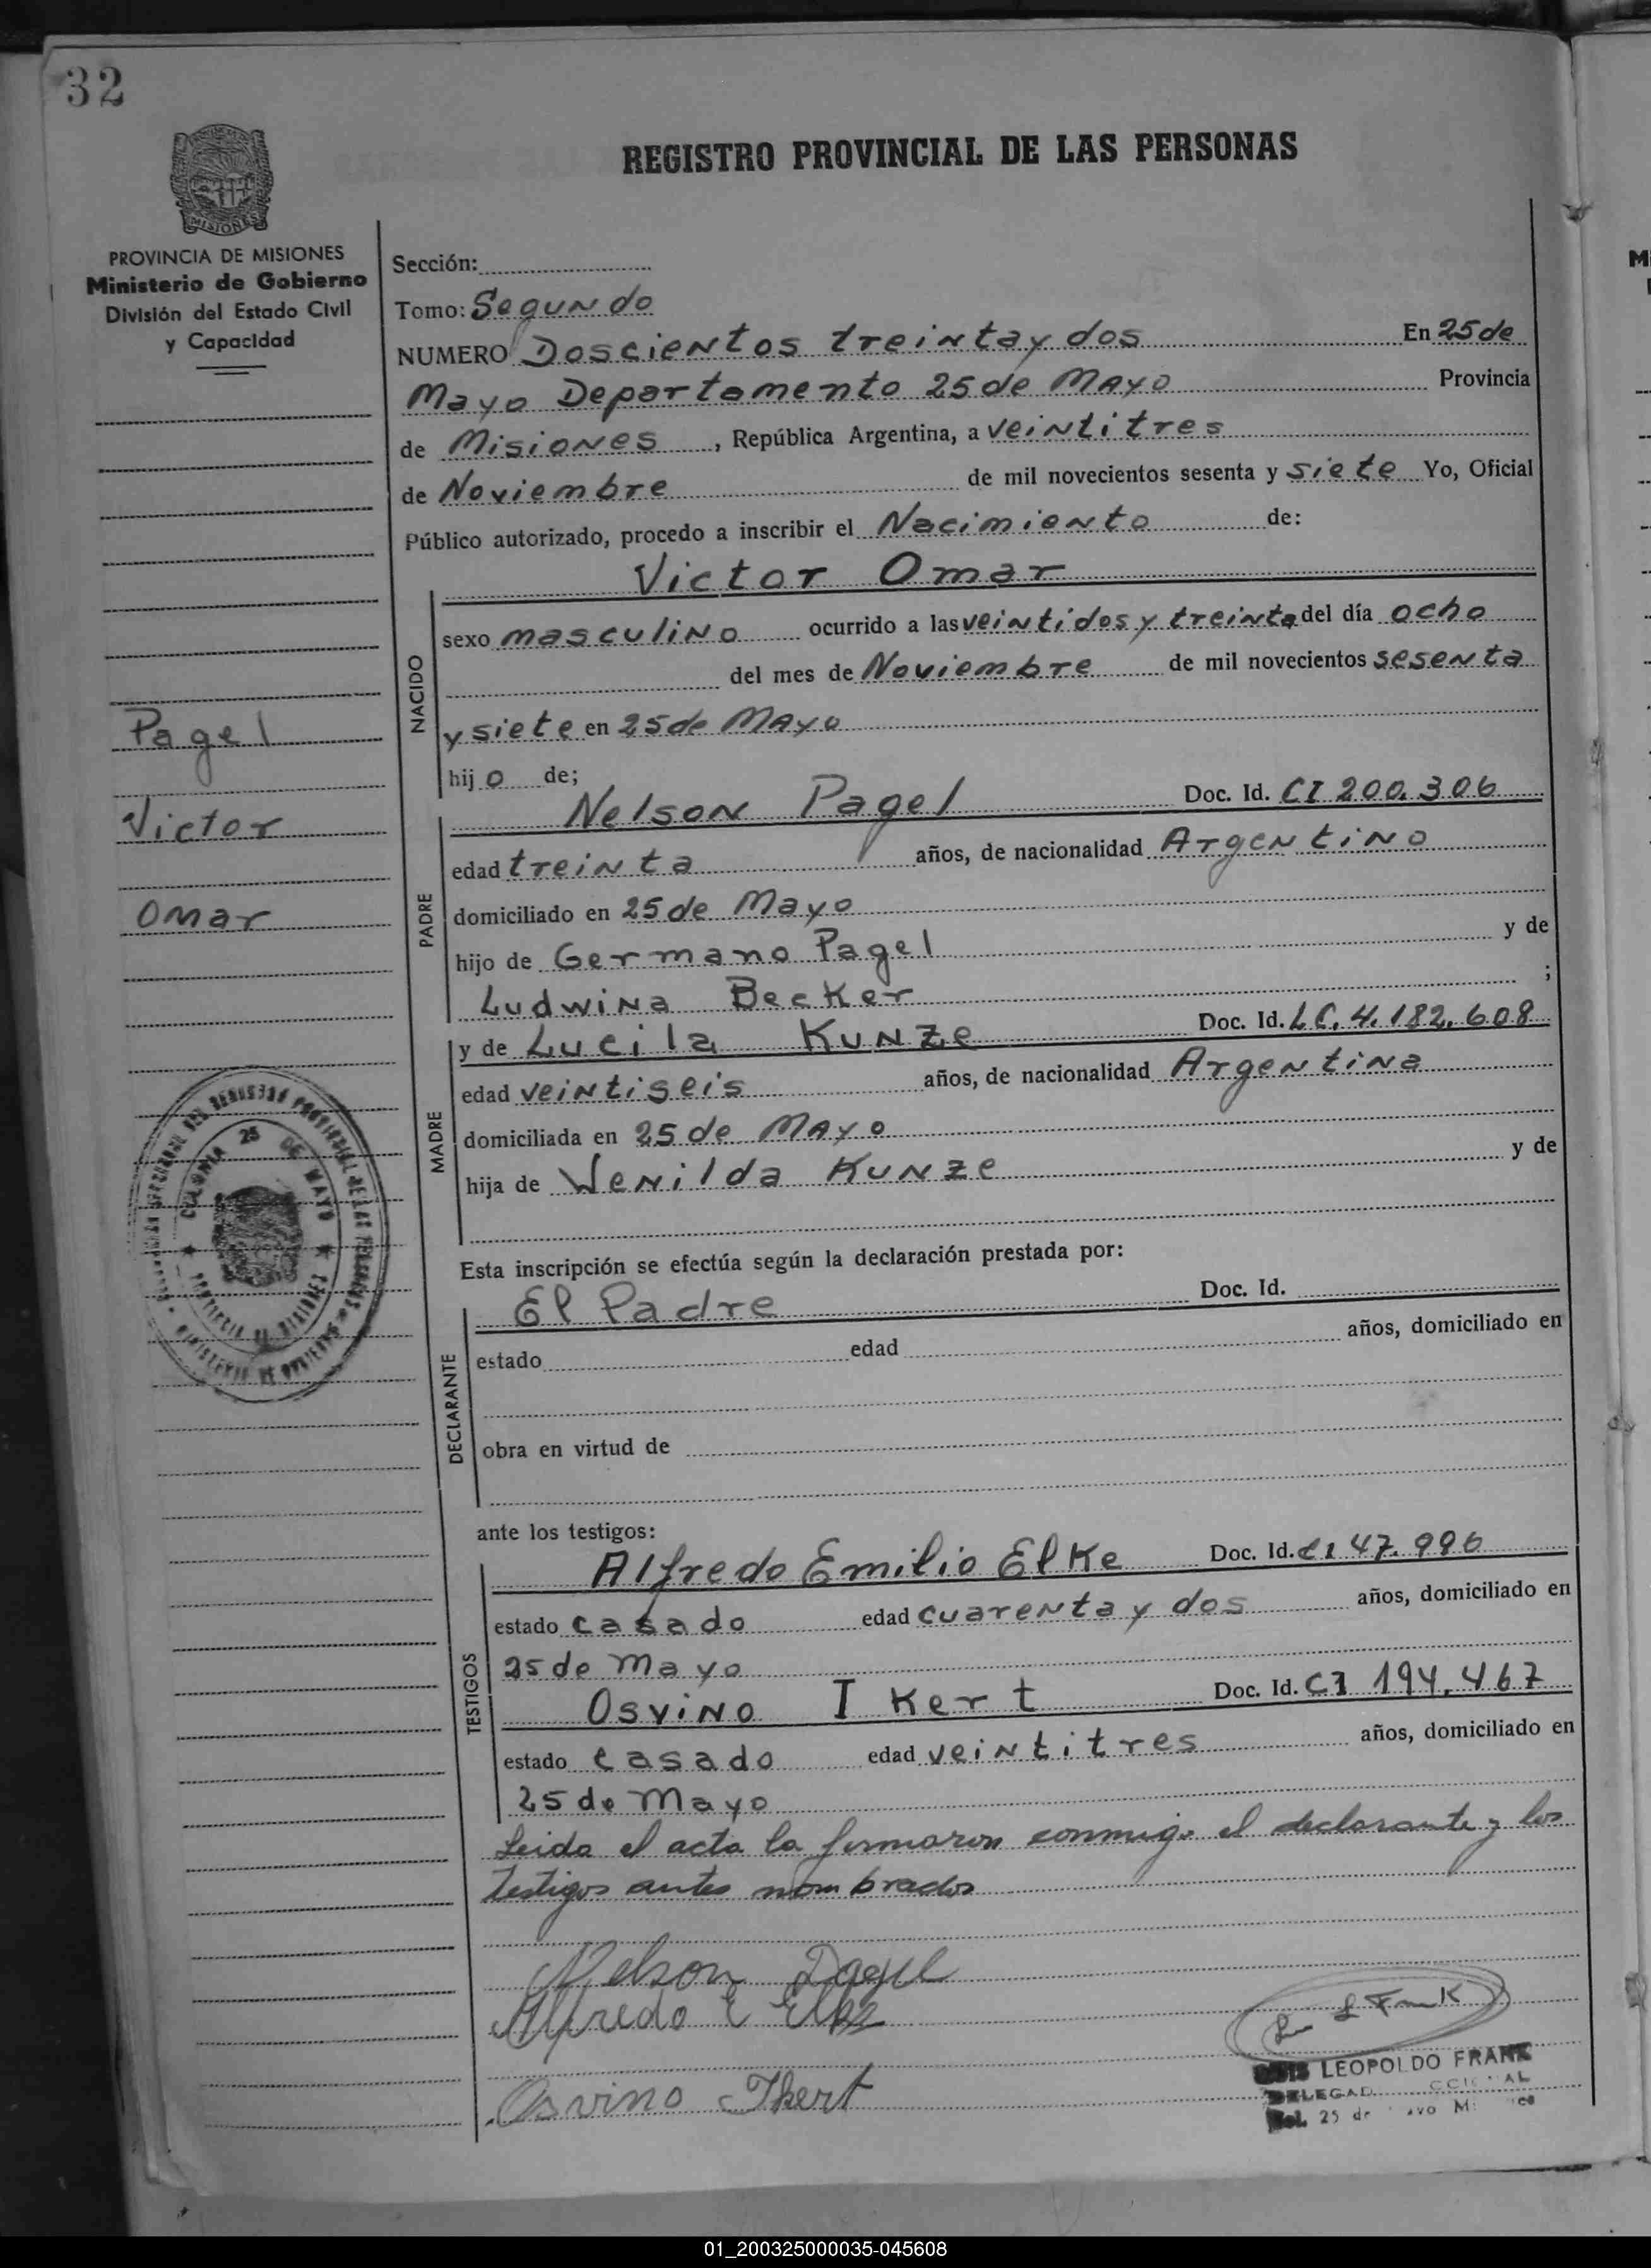 32
REGISTRO PROVINCIAL DE LAS PERSONAS
MISIONES
PROVINCIA DE MISIONES
Ministerio de Gobierno
División del Estado Civil
y Capacidad
Pagel
Victor
Omar
COLONIA 25 DE MAYO
Sección:
Tomo: Segundo
NUMERO Doscientos treinta y dos En 25 de
Mayo Departamento 25 de Mayo Provincia
de Misiones, República Argentina, a veintitres
de Noviembre de mil novecientos sesenta y siete Yo, Oficial
Público autorizado, procedo a inscribir el Nacimiento de:
Victor Omar
NACIDO
sexo masculino ocurrido a las veintidos y treinta del día ocho
del mes de Noviembre de mil novecientos sesenta
y siete en 25 de Mayo
hijo de;
Nelson Pagel Doc. Id. CI 200.306
PADRE
edad treinta años, de nacionalidad Argentino
domiciliado en 25 de Mayo
hijo de Germano Pagel y de
Ludwina Becker ;
y de Lucila Kunze Doc. Id. LC. 4.182.608
MADRE
edad veintiseis años, de nacionalidad Argentina
domiciliada en 25 de Mayo
hija de Wenilda Kunze y de
Esta inscripción se efectúa según la declaración prestada por:
El Padre Doc. Id.
DECLARANTE
estado edad años, domiciliado en
obra en virtud de
ante los testigos:
Alfredo Emilio Elke Doc. Id. CI 47.996
TESTIGOS
estado casado edad cuarenta y dos años, domiciliado en
25 de Mayo
Osvino Ikert Doc. Id. CI 194.467
estado casado edad veintitres años, domiciliado en
25 de Mayo
Leida el acta la firmaron conmigo el declarante y los
testigos antes nombrados
Nelson Pagel
Alfredo E Elke
Osvino Ikert
L Frank
LUIS LEOPOLDO FRANK
Del. 25 de Mayo
01_200325000035-045608